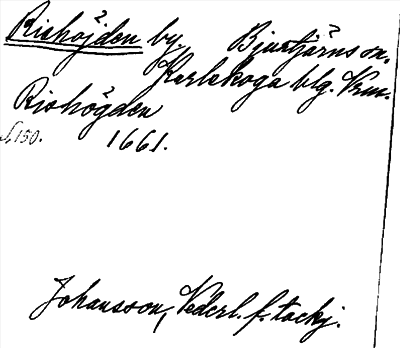 Rishöjden by, Bjurtjärns sn.
Karlskoga blg. Vrm.
Rishögden
f. 150. 1661.
Johansson, Nederl. f. tackj.